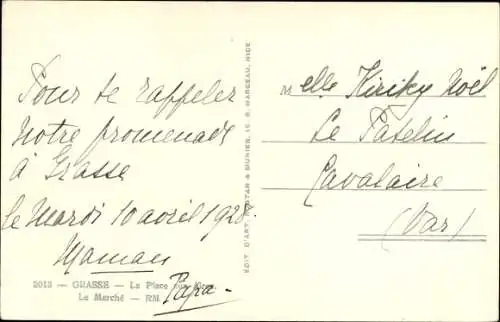 Pour te rappeler
notre promenade
à Grasse
le Mardi 10 avril 1928.
Maman
Papa
2013 — GRASSE — La Place aux Aires
Le Marché — RM
ÉDIT. D'ART, ROSTAN & MUNIER, 15, R. MARCEAU, NICE
Melle Kiriky Noël
Le Patelin
Cavalaire
(Var)